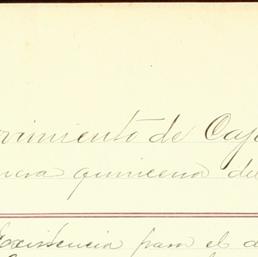 ovimiento de Caj
mera quincena del
Existencia para el d